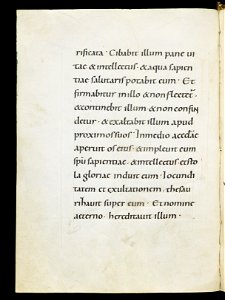 rificata · Cibabit illum pane ui
tae & intellectus · & aqua sapien
tiae salutaris potabit eum · Et
firmabitur in illo & non flectet̄ ·
& continebit illum & non confun
detur · & exaltabit illum apud
proximos suos · In medio
aperuit os eius · & impleuit eum
sp̄u sapientiae · & intellectus & sto
la gloriae induit eum · Iocundi
tatem et exultationem · thesau
rizauit super eum · Et nomine
aeterno · hereditauit illum ·